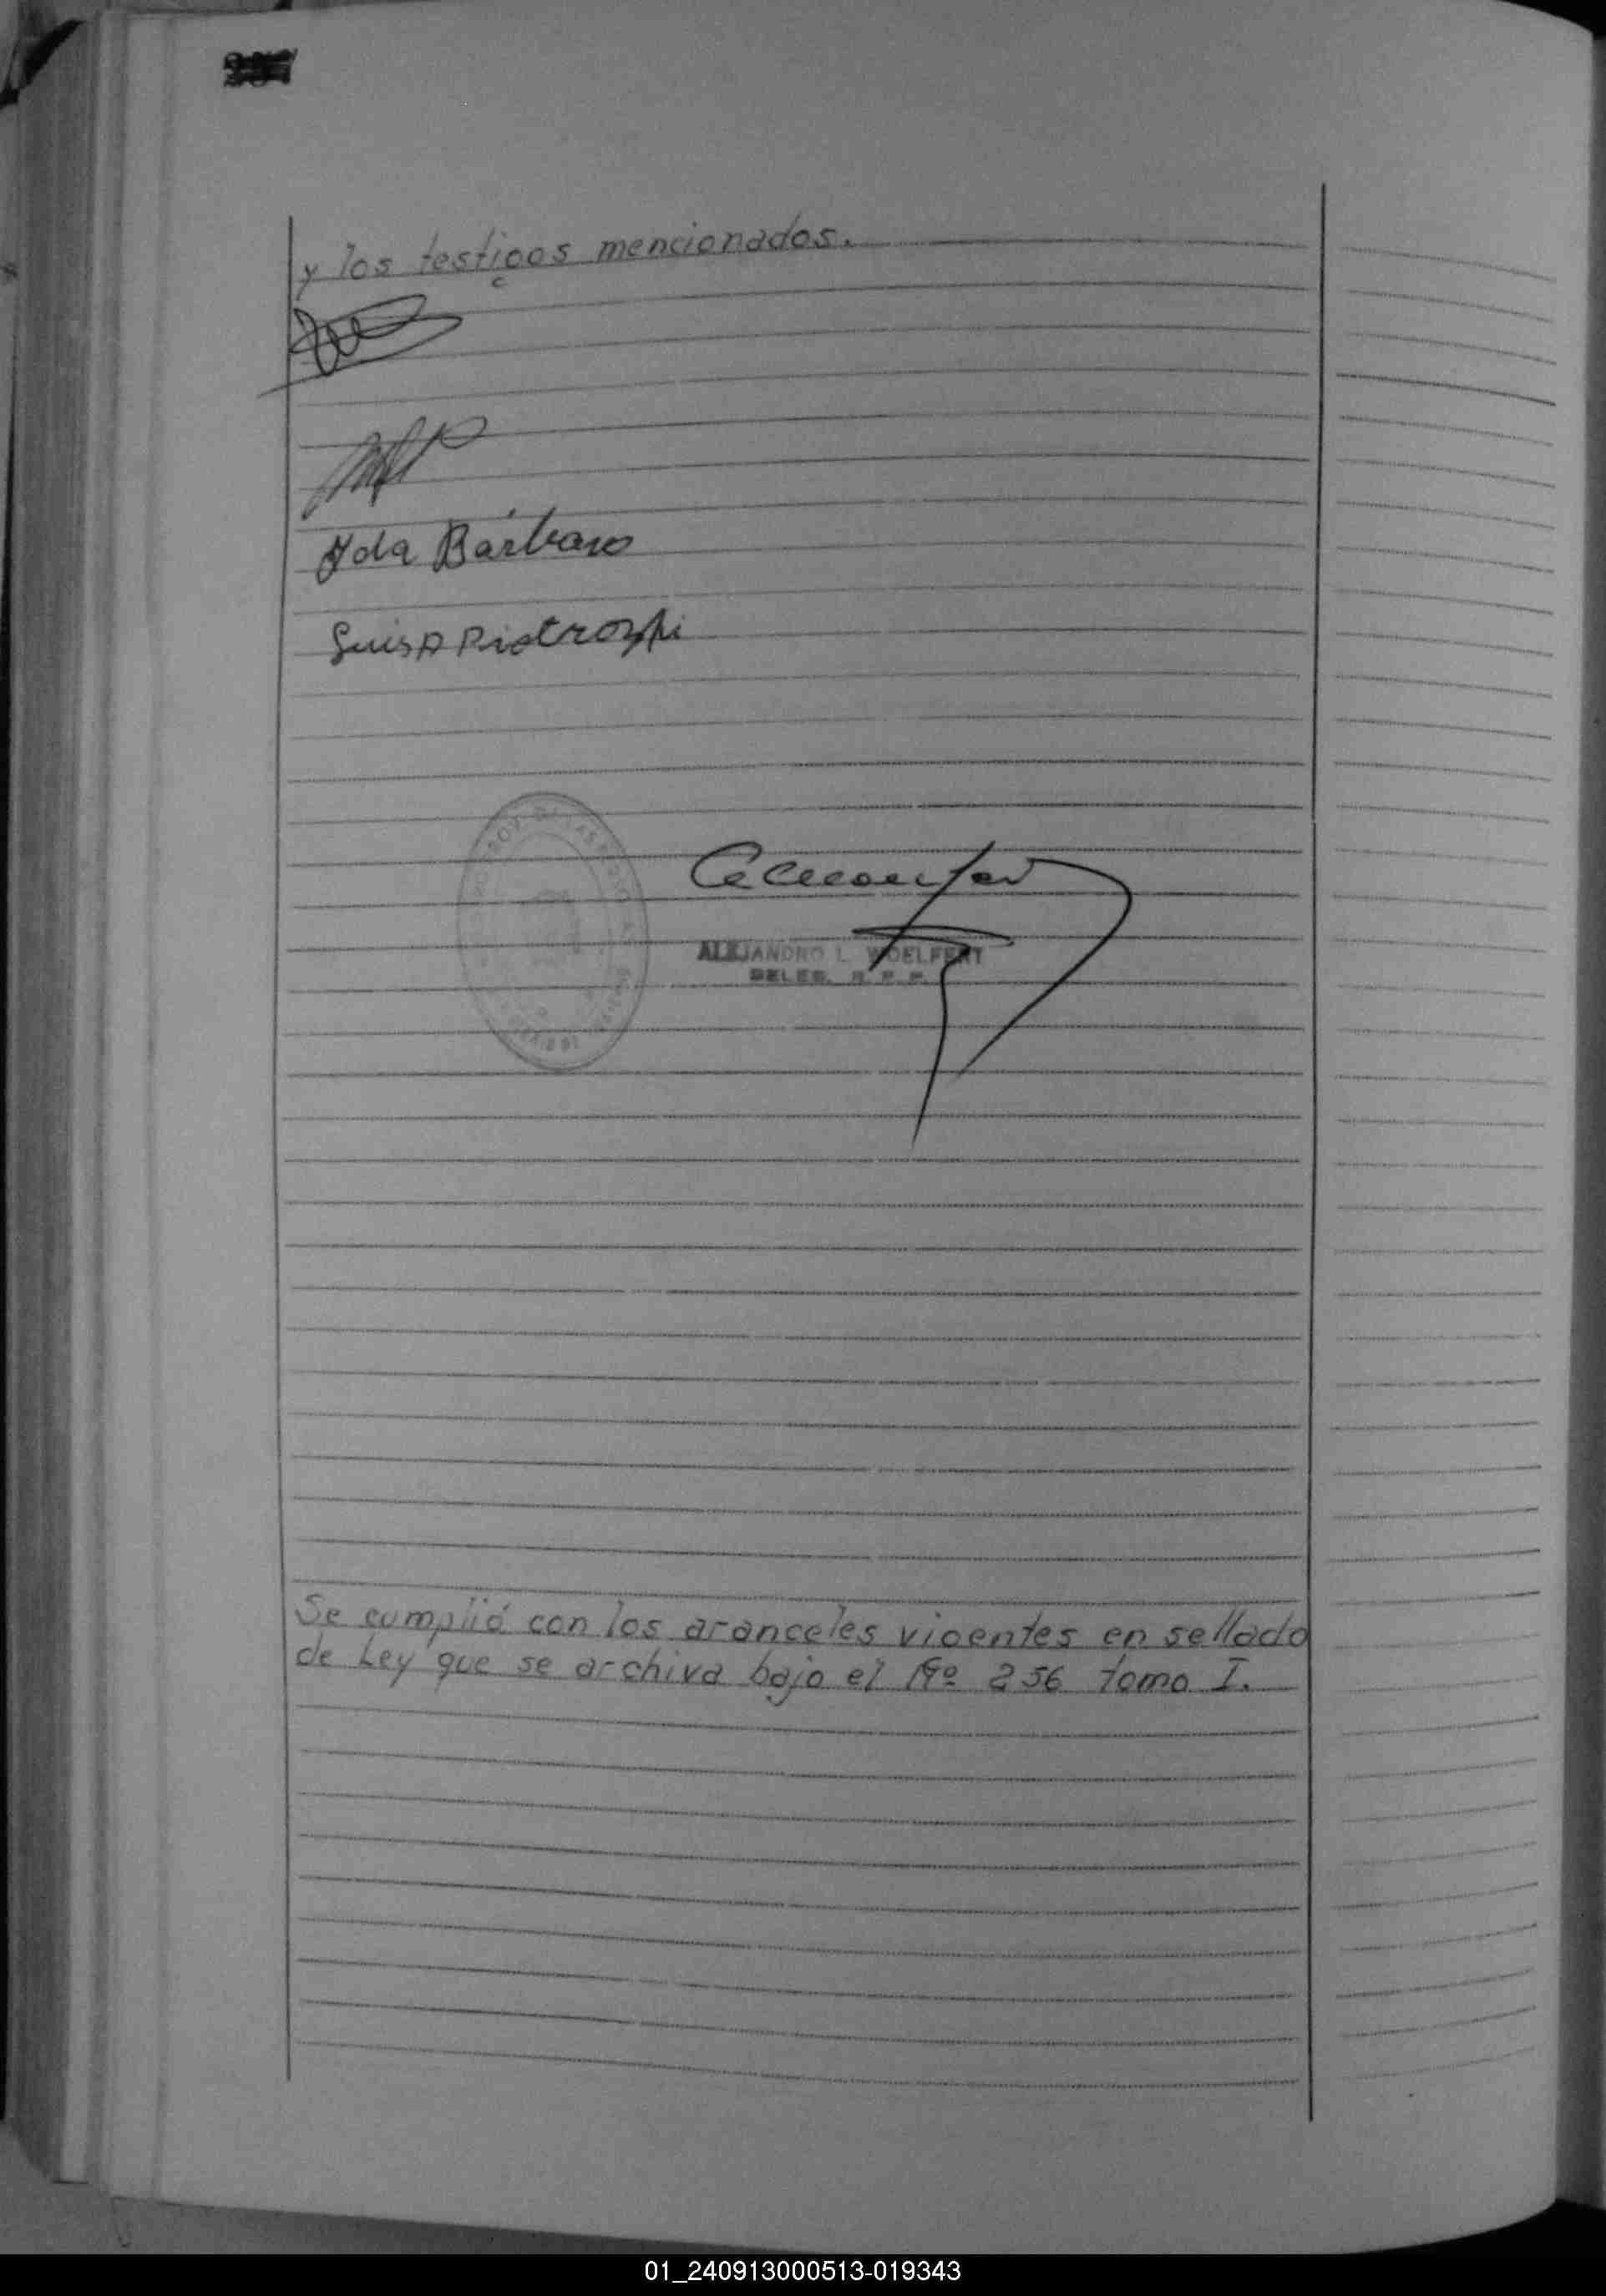 y los testigos mencionados.
Ida Bárbaro
Luis A
ALEJANDRO L. WOELFERT
DELEG. R. P. P.
Se cumplió con los aranceles vigentes en sellado
de Ley que se archiva bajo el Nº 256 tomo I.
01_240913000513-019343